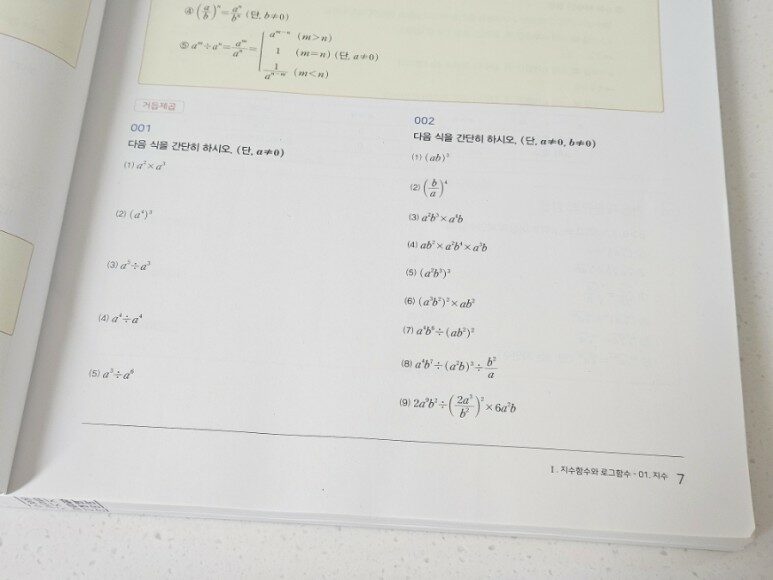 ④ (a/b)ⁿ = aⁿ/bⁿ (단, b≠0)
⑤ aᵐ÷aⁿ = aᵐ/aⁿ = { aᵐ⁻ⁿ (m>n)
1 (m=n) (단, a≠0)
1/aⁿ⁻ᵐ (m<n)
거듭제곱
001
다음 식을 간단히 하시오. (단, a≠0)
(1) a²×a³
(2) (a⁴)³
(3) a⁵÷a³
(4) a⁴÷a⁴
(5) a³÷a⁶
002
다음 식을 간단히 하시오. (단, a≠0, b≠0)
(1) (ab)³
(2) (b/a)⁴
(3) a²b³×a⁴b
(4) ab²×a²b⁴×a³b
(5) (a²b³)³
(6) (a³b²)²×ab²
(7) a⁴b⁸÷(ab²)²
(8) a⁴b⁷÷(a²b)³÷b²/a
(9) 2a⁹b²÷(2a³/b²)²×6a²b
Ⅰ. 지수함수와 로그함수 - 01. 지수 7